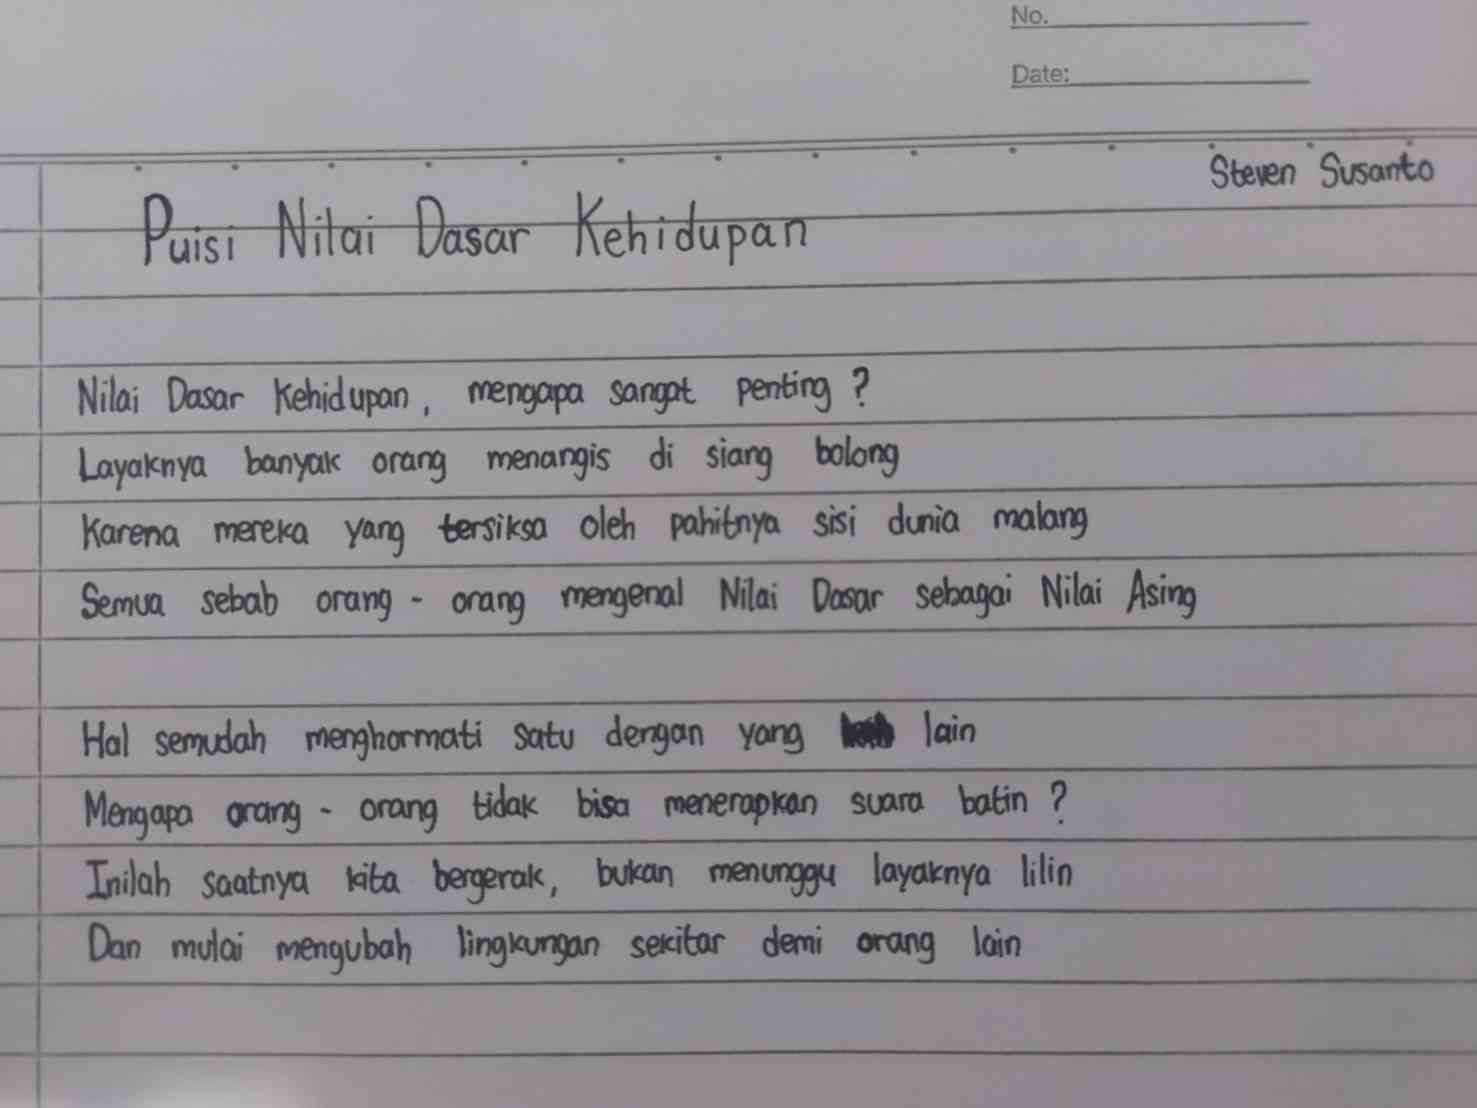 No.
Date:
Steven Susanto
Puisi Nilai Dasar Kehidupan
Nilai Dasar Kehidupan, mengapa sangat penting ?
Layaknya banyak orang menangis di siang bolong
Karena mereka yang tersiksa oleh pahitnya sisi dunia malang
Semua sebab orang - orang mengenal Nilai Dasar sebagai Nilai Asing
Hal semudah menghormati satu dengan yang lain
Mengapa orang - orang tidak bisa menerapkan suara batin ?
Inilah saatnya kita bergerak, bukan menunggu layaknya lilin
Dan mulai mengubah lingkungan sekitar demi orang lain